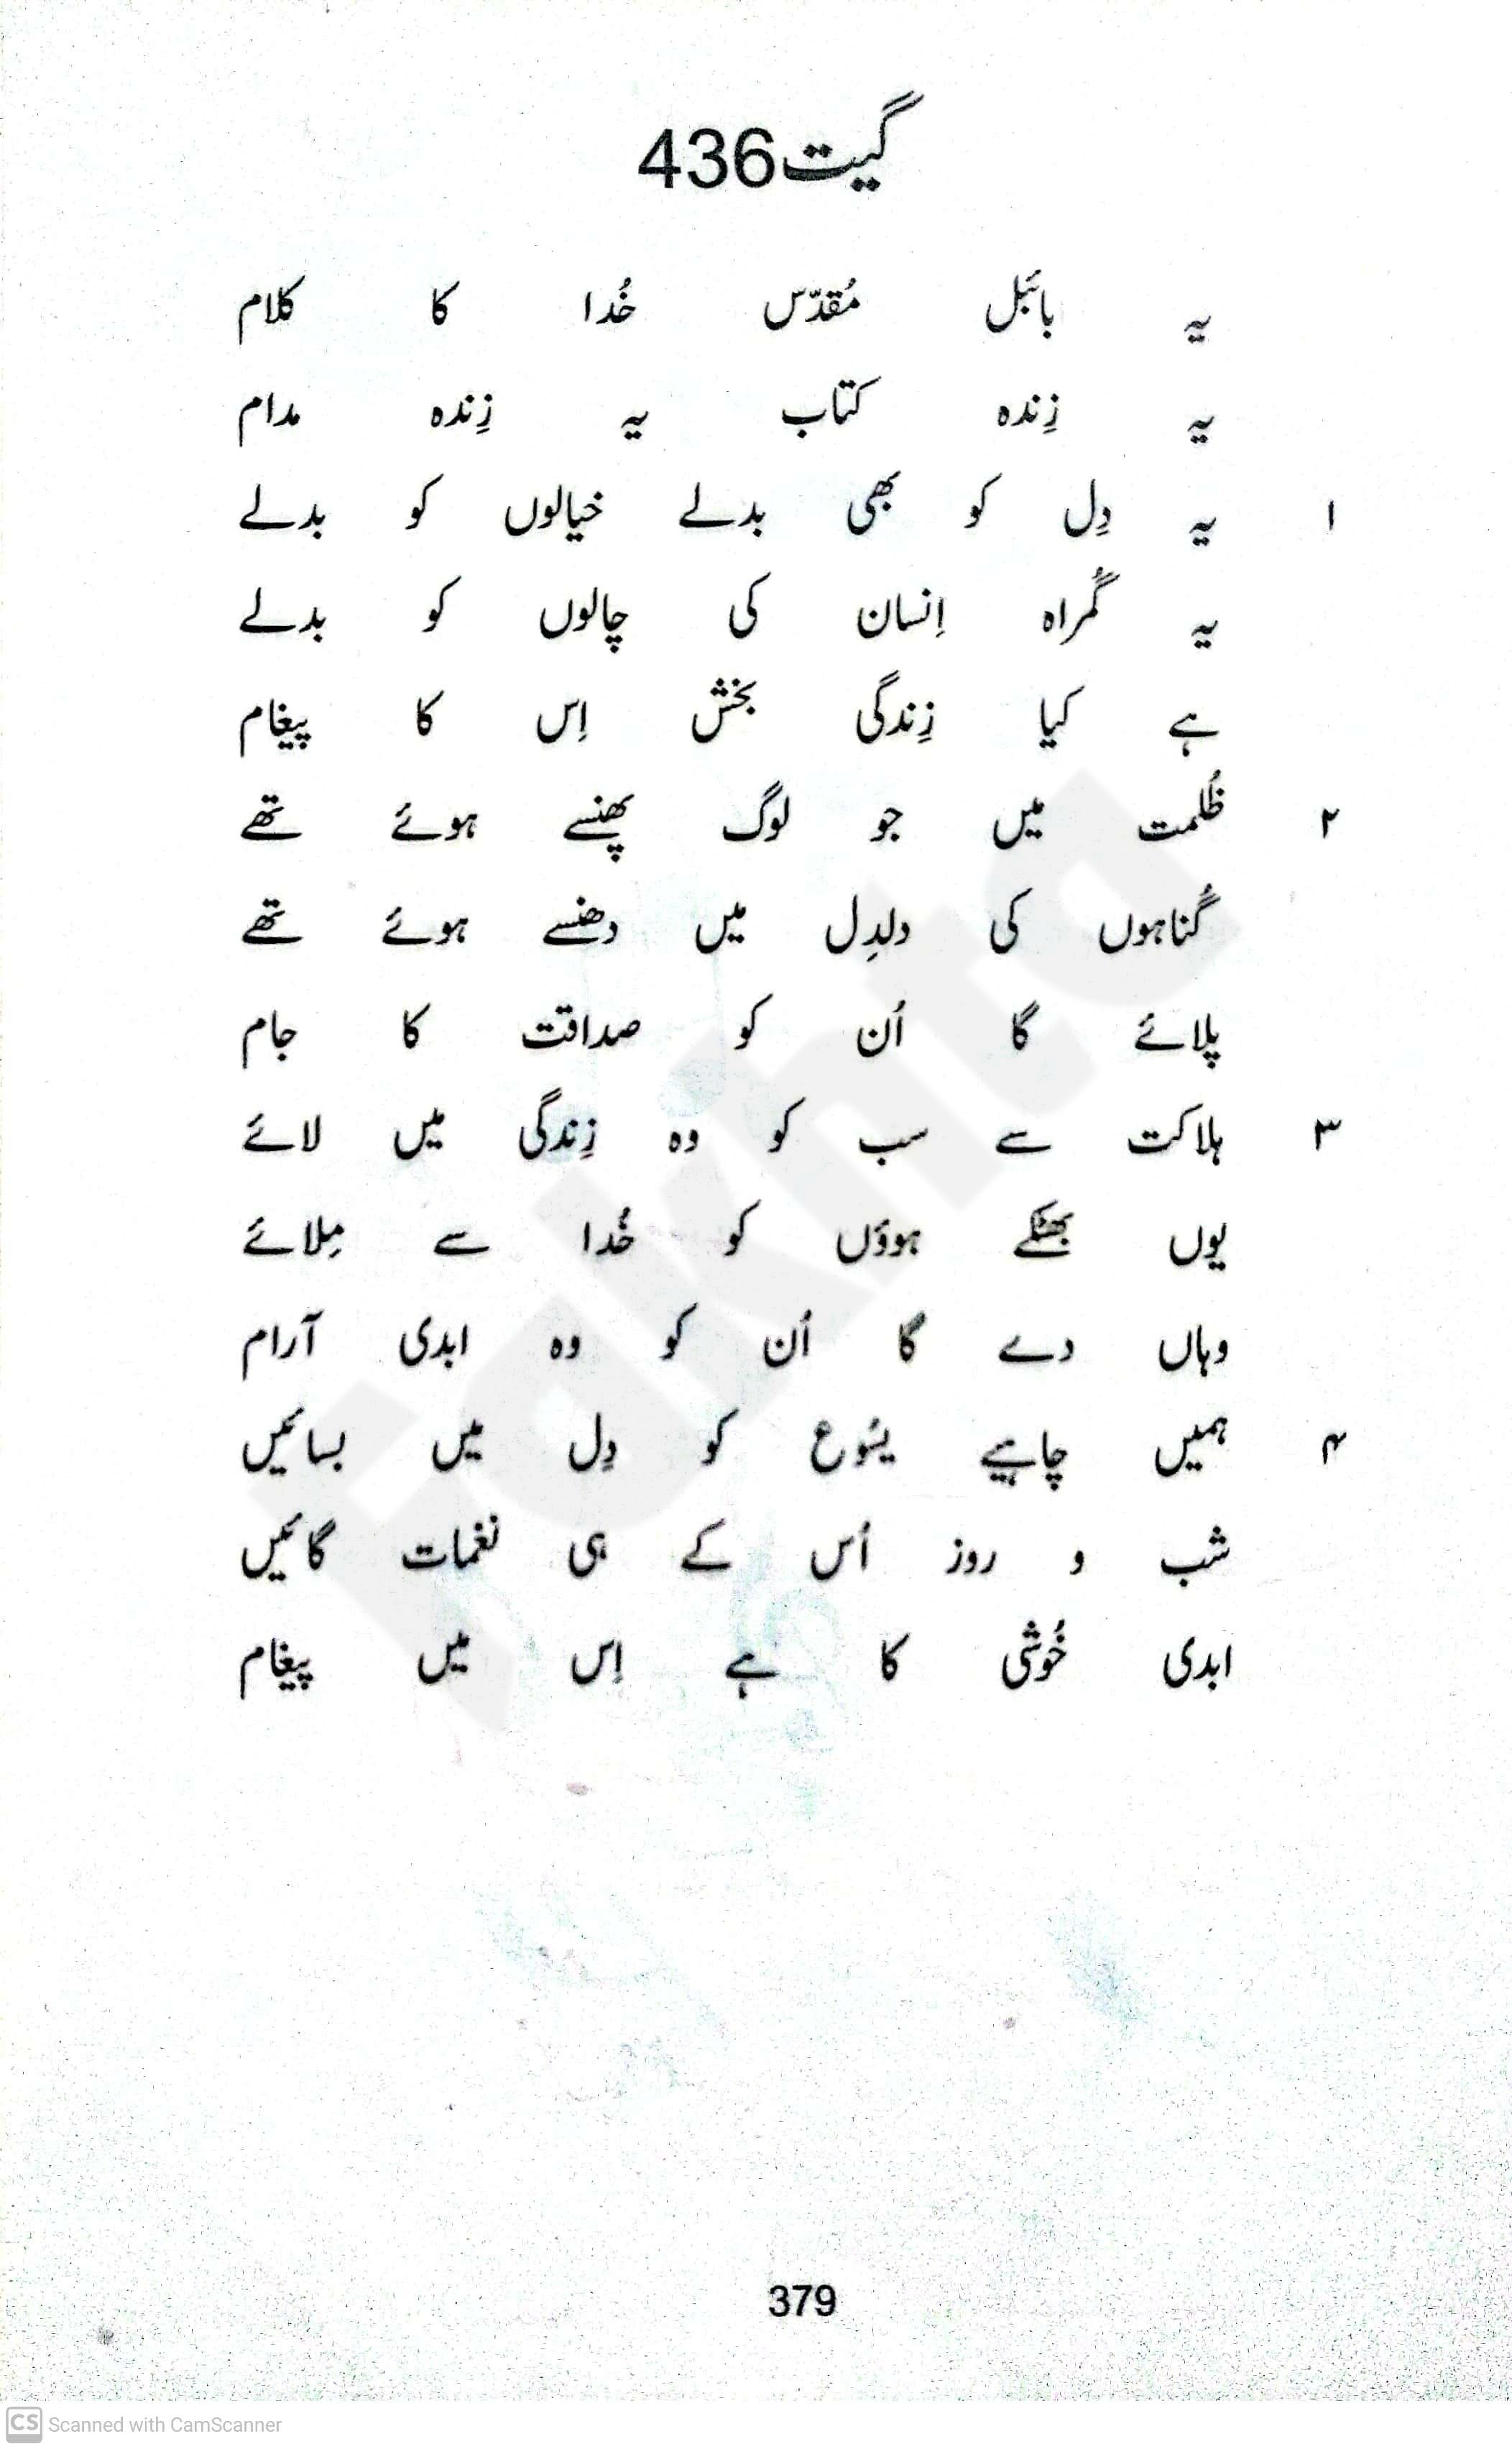 گیت436
یہ بائبل مُقدّس خُدا کا کلام
یہ زِندہ کتاب یہ زِندہ مدام
۱ یہ دِل کو بھی بدلے خیالوں کو بدلے
یہ گُمراہ اِنسان کی چالوں کو بدلے
ہے کیا زِندگی بخش اِس کا پیغام
۲ ظُلمت میں جو لوگ پھنسے ہوئے تھے
گُناہوں کی دلدِل میں دھنسے ہوئے تھے
پلائے گا اُن کو صداقت کا جام
۳ ہلاکت سے سب کو وہ زِندگی میں لائے
یوں بھٹکے ہوؤں کو خُدا سے مِلائے
وہاں دے گا اُن کو وہ ابدی آرام
۴ ہمیں چاہیے یسُوع کو دِل میں بسائیں
شب و روز اُس کے ہی نغمات گائیں
ابدی خُوشی کا ہے اِس میں پیغام
Fakhta
379
CS Scanned with CamScanner